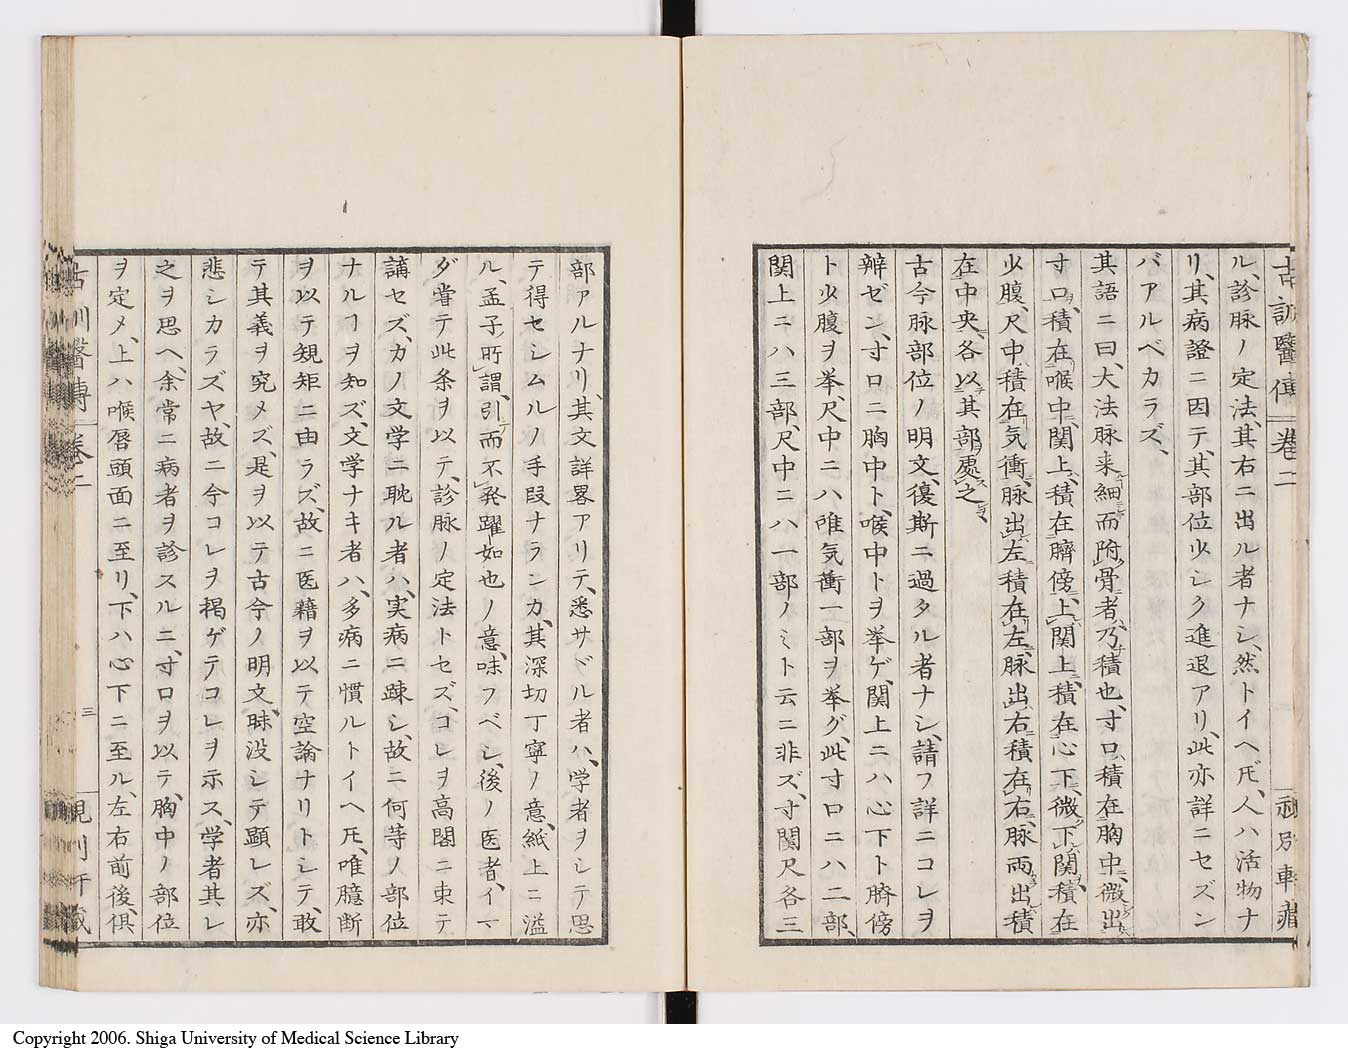 古訓醫傳 卷二 視別軒藏
ル、診脉ノ定法、其右ニ出ル者ナシ、然トイヘ𪜈、人ハ活物ナ
リ、其病證ニ因テ、其部位少シク進退アリ、此亦詳ニセズン
バアルベカラズ、
其語ニ曰、大法脉来細而附骨者、乃積也、寸口積在胸中、微出
寸口、積在喉中、関上、積在臍傍、上関上、積在心下、微下関、積在
少腹、尺中、積在気衝、脉出左積在左、脉出右積在右、脉両出積
在中央、各以其部處之、
古今脉部位ノ明文、復斯ニ過タル者ナシ、請フ詳ニコレヲ
辨ゼン、寸口ニ胸中ト、喉中トヲ挙ゲ、関上ニハ心下ト臍傍
ト少腹ヲ挙、尺中ニハ唯気衝一部ヲ挙グ、此寸口ニハ二部、
関上ニハ三部、尺中ニハ一部ノミト云ニ非ズ、寸関尺各三
部アルナリ、其文詳畧アリテ、悉サヾル者ハ、学者ヲシテ思
テ得セシムルノ手段ナランカ、其深切丁寧ノ意、紙上ニ溢
ル、孟子所謂、引而不発躍如也ノ意、味フベシ、後ノ医者、イマ
ダ嘗テ此条ヲ以テ、診脉ノ定法トセズ、コレヲ高閣ニ束テ
誦セズ、カノ文学ニ耽ル者ハ、実病ニ疎シ、故ニ何等ノ部位
ナルヿヲ知ズ、文学ナキ者ハ、多病ニ慣ルトイヘ𪜈、唯臆断
ヲ以テ規矩ニ由ラズ、故ニ医籍ヲ以テ空論ナリトシテ、敢
テ其義ヲ究メズ、是ヲ以テ古今ノ明文、昧没シテ顕レズ、亦
悲シカラズヤ、故ニ今コレヲ掲ゲテコレヲ示ス、学者其レ
之ヲ思ヘ、余常ニ病者ヲ診スルニ、寸口ヲ以テ、胸中ノ部位
ヲ定メ、上ハ喉唇頭面ニ至リ、下ハ心下ニ至ル、左右前後、倶
古訓醫傳 卷二 三
Copyright 2006. Shiga University of Medical Science Library